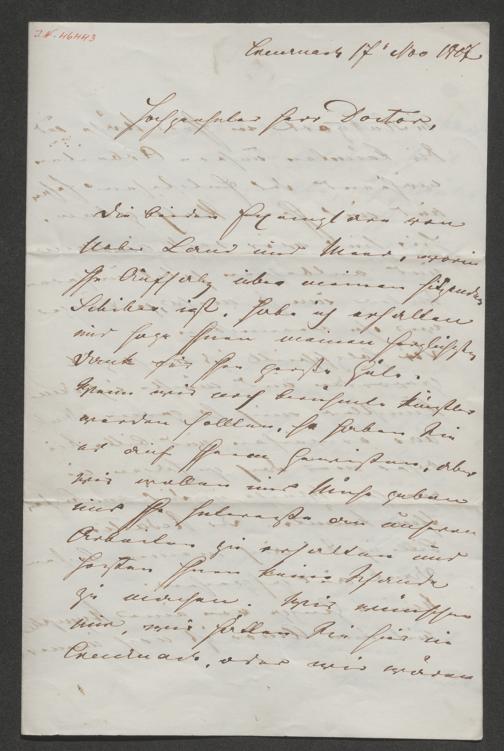 I.N. 46443
Creuznach 17t Nov 1867
Hochgeehrter Herr Doctor,
Die beiden Exemplare von
Ueber Land und Meer, worin
Ihr Aufsatz über meinen sitzenden
Schiller ist, habe ich erhalten
und sage Ihnen meinen herzlichsten
Dank für Ihre große Güte.
Wenn wir noch berühmte Künstler
werden sollten, so haben Sie
es auf Ihrem Gewissen, aber
wir wollen uns Mühe geben
uns Ihr Interesse an unseren
Arbeiten zu erhalten und
hoffen Ihnen keine Schande
zu machen. Wir wünschen
nur, wir hätten Sie hier in
Creuznach, oder wir wären